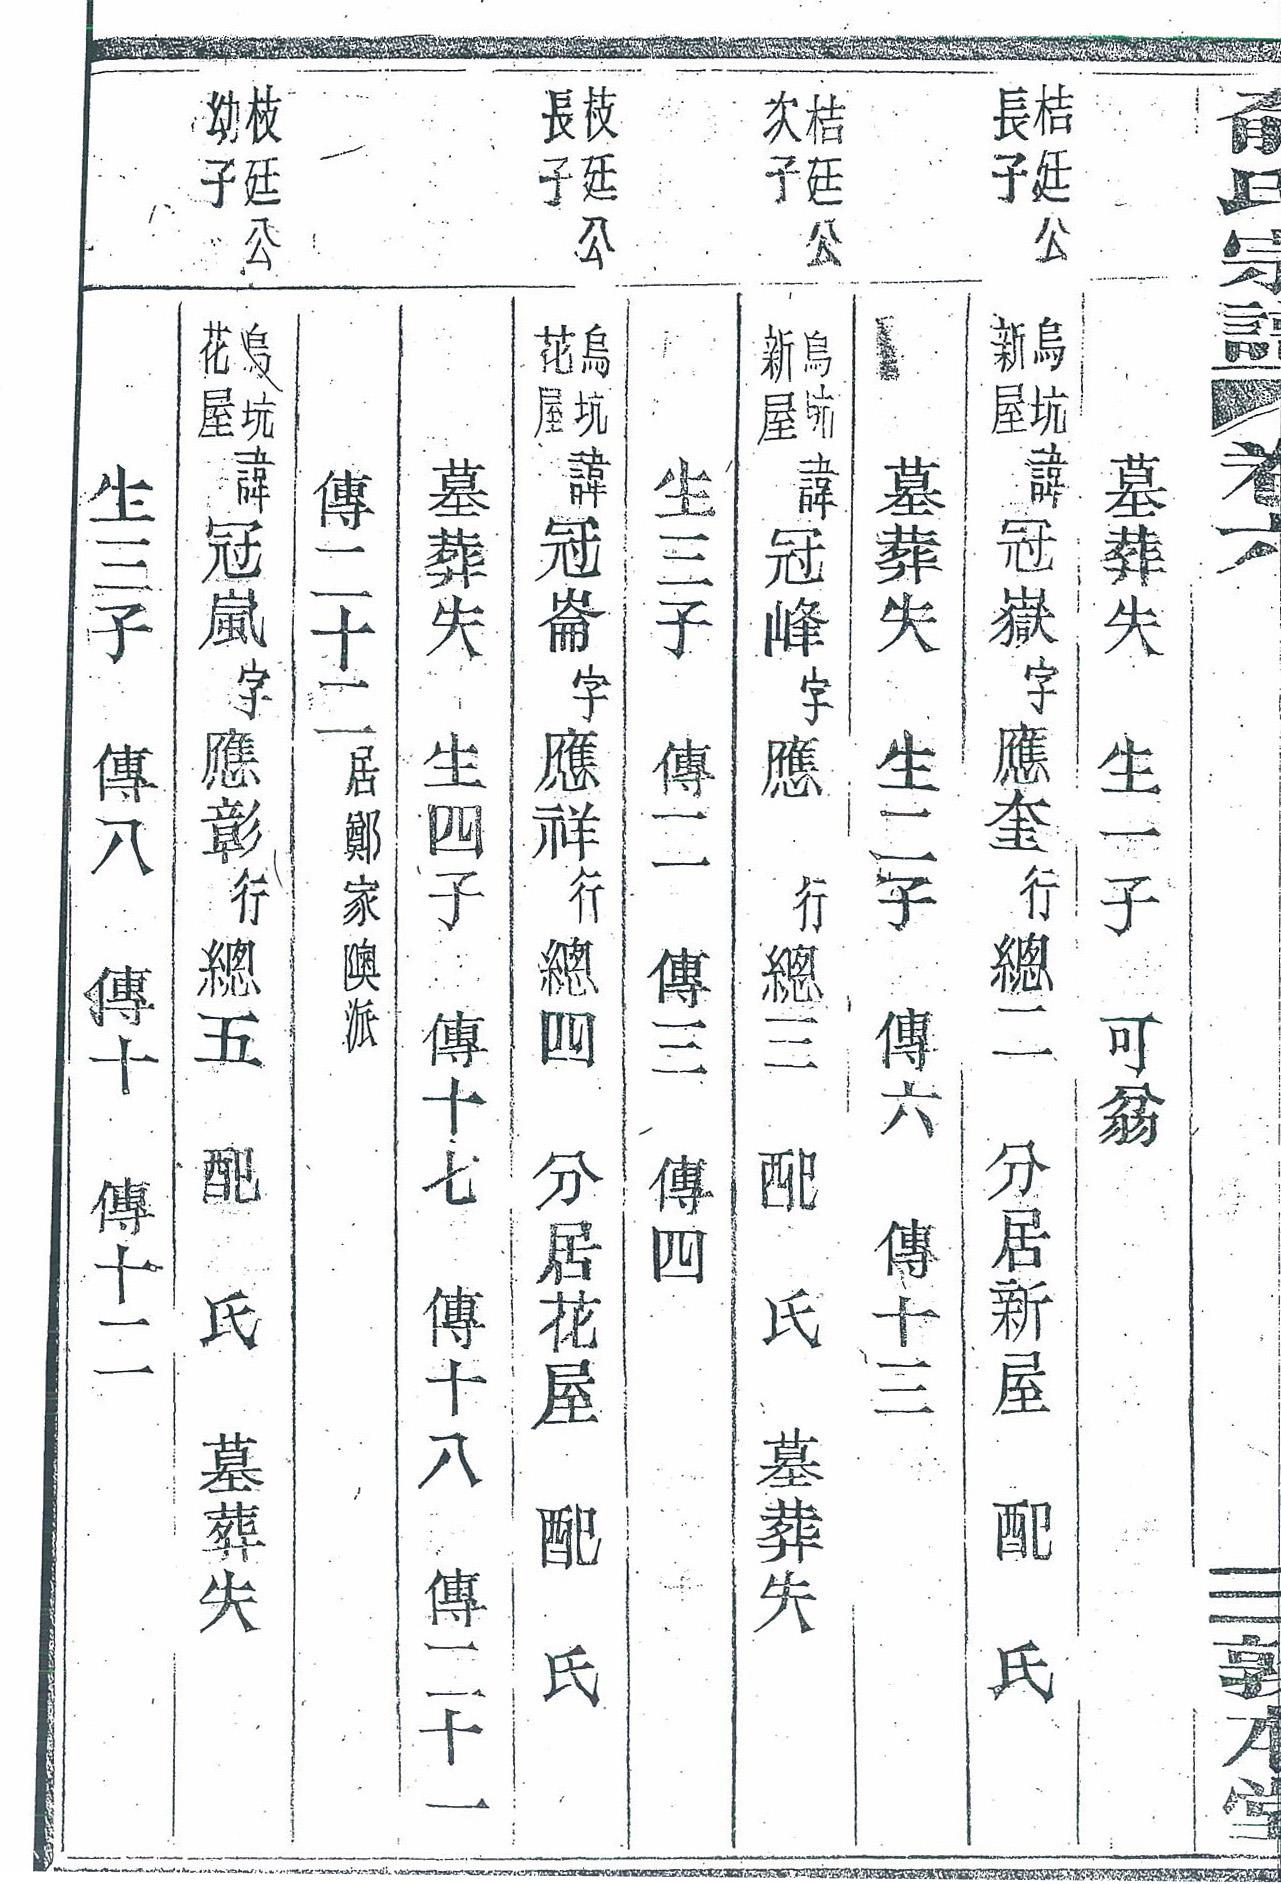 俞氏宗譜 卷六 三 敦本堂
墓葬失 生一子 可翁
桔廷公長子 烏坑新屋 諱冠嶽字應奎行總二 分居新屋 配 氏
墓葬失 生二子 傳六 傳十三
桔廷公次子 烏坑新屋 諱冠峰字應 行總三 配 氏 墓葬失
生三子 傳二 傳三 傳四
枝廷公長子 烏坑花屋 諱冠崙字應祥行總四 分居花屋 配 氏
墓葬失 生四子 傳十七 傳十八 傳二十一
傳二十二 居鄭家隩派
枝廷公幼子 烏坑花屋 諱冠嵐字應彰行總五 配 氏 墓葬失
生三子 傳八 傳十 傳十二